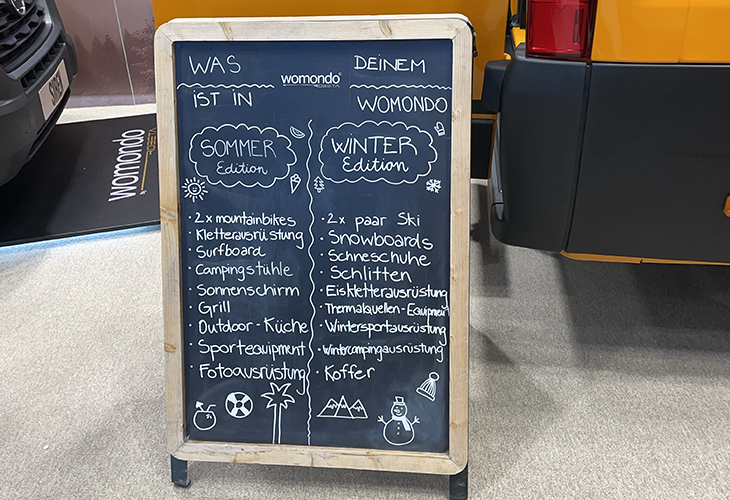 WAS
womondo®
DEINEM
IST IN
WOMONDO
SOMMER
Edition
• 2x mountainbikes
• Kletterausrüstung
• Surfboard
• Campingstühle
• Sonnenschirm
• Grill
• Outdoor-Küche
• Sportequipment
• Fotoausrüstung
WINTER
Edition
• 2x paar Ski
• Snowboards
• Schneschuhe
• Schlitten
• Eiskletterausrüstung
• Thermalquellen-Equipment
• Wintersportausrüstung
• Wintercampingausrüstung
• Koffer
womondo